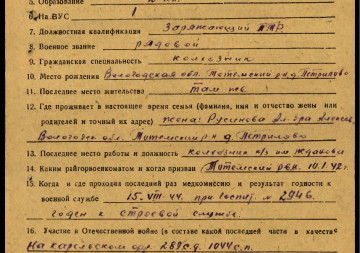 5. Образование
6. На ВУС 1
7. Должностная квалификация Заряжающий ПТР
8. Военное звание рядовой
9. Гражданская специальность колхозник
10. Место рождения Вологодская обл. Тотемский р-н д. Петрилово
11. Последнее место жительства там же
12. Где проживает в настоящее время семья (фамилия, имя и отчество жены или
родителей и точный их адрес) жена: Русинова Ал-дра Алексеев
Вологодск. обл. Тотемский р-н д. Петрилово
13. Последнее место работы и должность колхозник к/з им. Жданова
14. Каким райгорвоенкоматом и когда призван Тотемский рвк. 10.1.42 г.
15. Когда и где проходил последний раз медкомиссию и результат годности к
военной службе 15.VIII 44. при госпит. № 2946.
годен к строевой службе.
16. Участие в Отечественной войне (в составе какой последней части в качестве
На Карельском фр. 289 с.д. 1044 с.п.